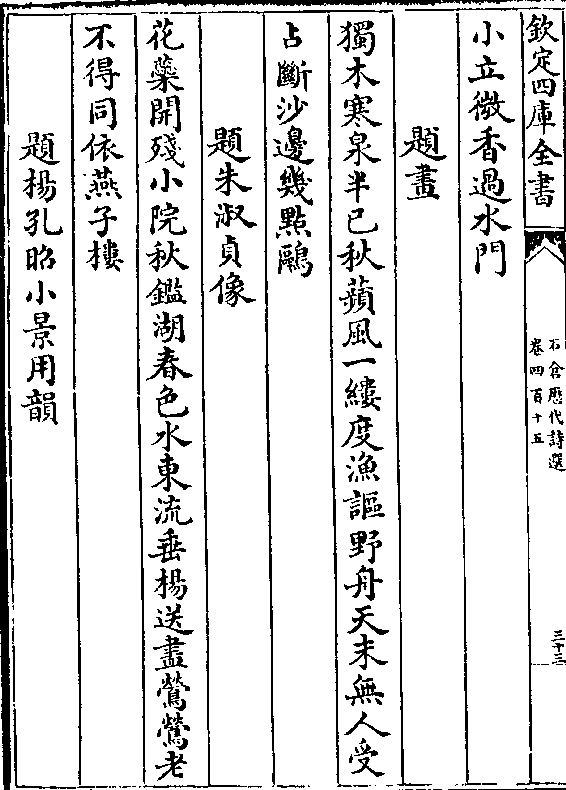 欽定四庫全書
石倉歷代詩選
卷四百十五
三十三
小立微香過水門
題畫
獨木寒泉半已秋蘋風一縷度漁謳野舟天末無人受
占斷沙邊幾點鷗
題朱淑貞像
花藥開殘小院秋鑑湖春色水東流垂楊送盡鶯鶯老
不得同依燕子樓
題楊孔昭小景用韻